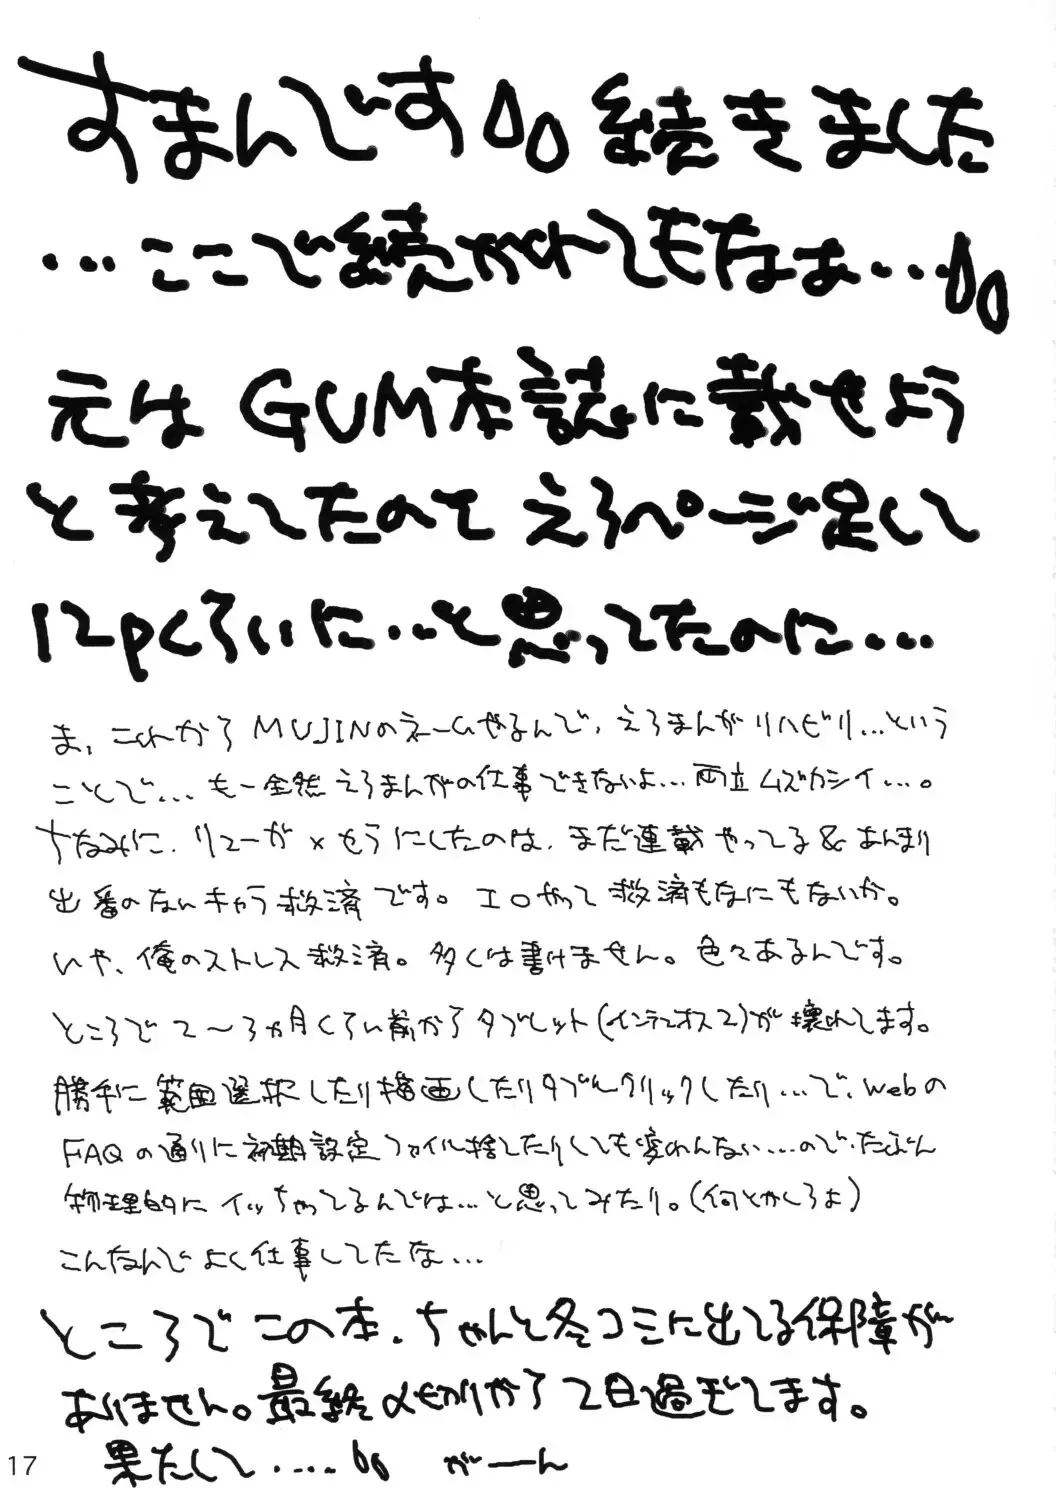 すまんです 続きました
…ここで続かれてもなぁ…
元は GUM本誌に載せよう
と考えてたので えろページ足して
12pくらいに…と思ってたのに…
ま、これから MUJINのネームやるんで、えろまんがリハビリ…という
ことで… もー全然えろまんがの仕事できないよ… 両立ムズカシイ…。
ちなみに、リューガ×せらにしたのは、まだ連載やってる&あんまり
出番のないキャラ救済です。エロやって救済もなにもないか。
いや、俺のストレス救済。多くは書けません。色々あるんです。
ところで2〜3ヵ月くらい前からタブレット(インテュオス2)が壊れてます。
勝手に範囲選択したり描画したりダブルクリックしたり…で、Webの
FAQの通りに初期設定ファイル捨てしたりしても変わんない…ので、たぶん
物理的にイッちゃってるんでは…と思ってみたり。(何とかしろよ)
こんなんでよく仕事してたな…
ところでこの本、ちゃんと冬コミに出てる保障が
ありません。最終〆切りから2日過ぎてます。
果たして…… がーーん
17